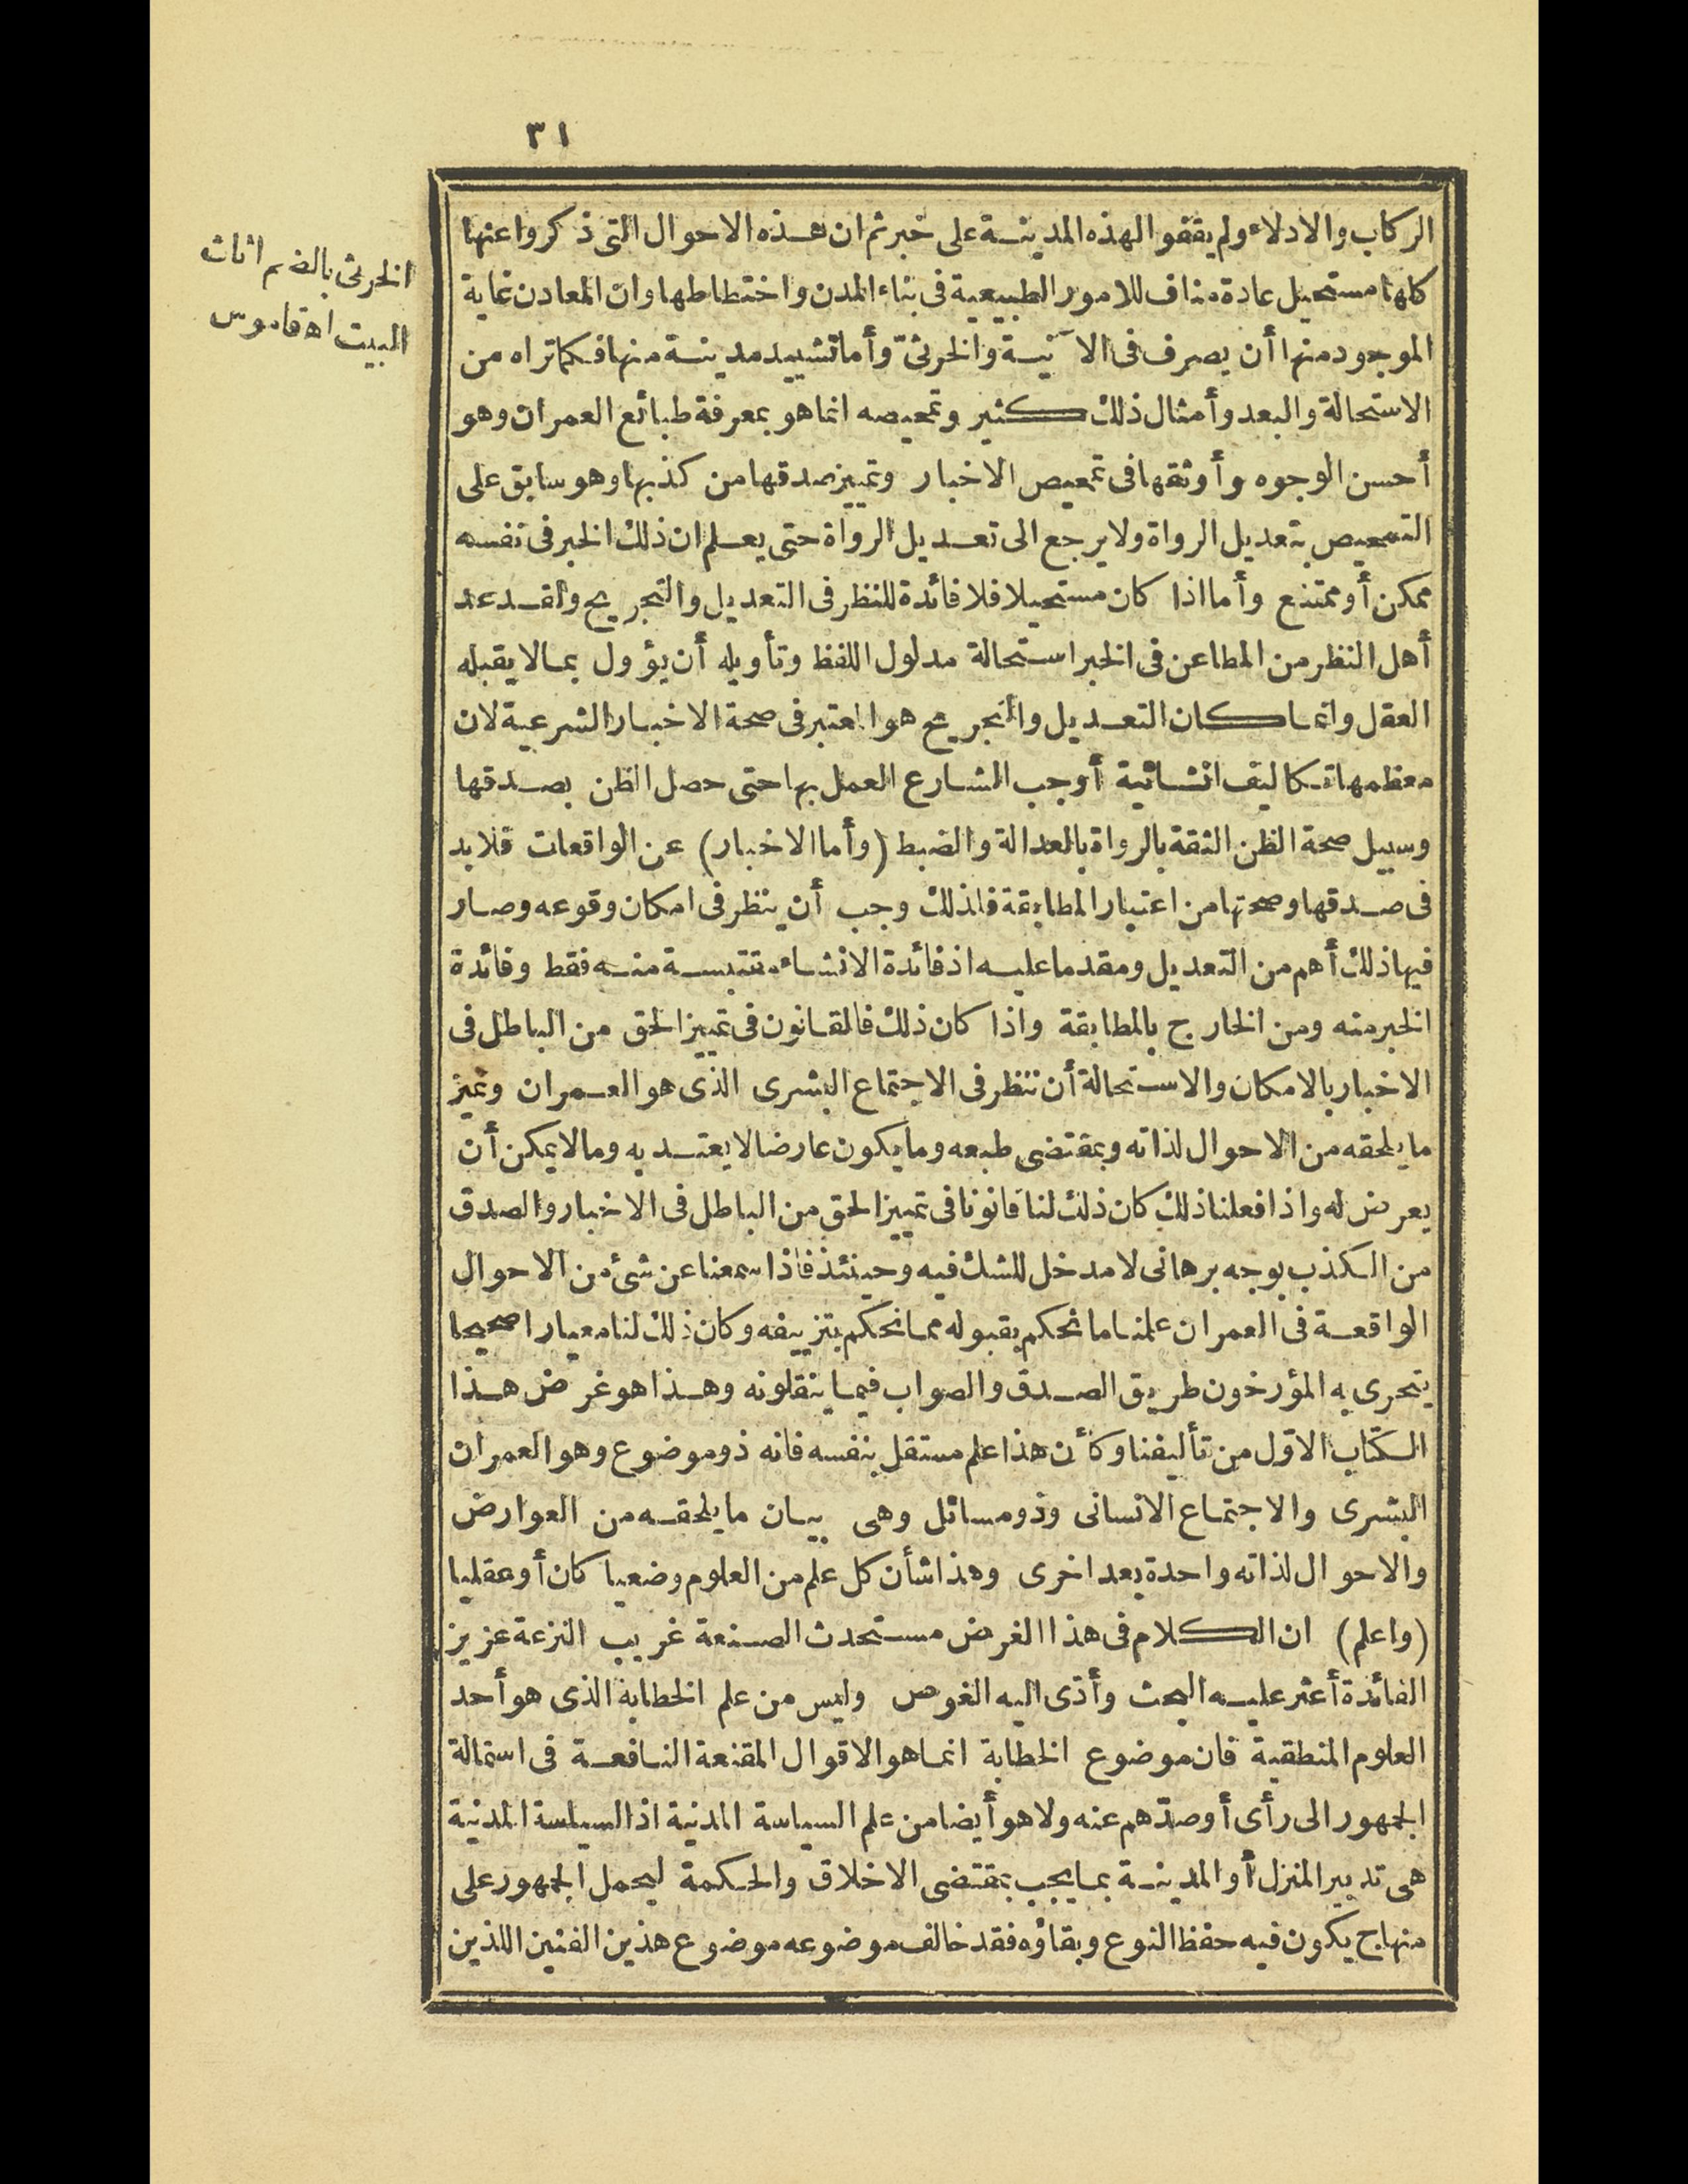 ٣١
الركاب والادلاء ولم يقفوا لهذه المدينة على خبر ثم ان هذه الاحوال التى ذكروا عنها
كلها مستحيل عادة مناف للامور الطبيعية فى بناء المدن واختطاطها وان المعادن غاية
الموجود منها أن يصرف فى الآنية والخرثىّ وأما تشييد مدينة منها فكما تراه من
الاستحالة والبعد وأمثال ذلك كثير وتمحيصه انما هو بمعرفة طبائع العمران وهو
أحسن الوجوه وأوثقها فى تمحيص الاخبار وتمييز صدقها من كذبها وهو سابق على
التمحيص بتعديل الرواة ولا يرجع الى تعديل الرواة حتى يعلم ان ذلك الخبر فى نفسه
ممكن أو ممتنع وأما اذا كان مستحيلا فلا فائدة للنظر فى التعديل والتجريح ولقد عد
أهل النظر من المطاعن فى الخبر استحالة مدلول اللفظ وتأويله أن يؤول بما لا يقبله
العقل وانما كان التعديل والتجريح هو المعتبر فى صحة الاخبار الشرعية لان
معظمها تكاليف انشائية أوجب الشارع العمل بها حتى حصل الظن بصدقها
وسبيل صحة الظن الثقة بالرواة بالعدالة والضبط (وأما الاخبار) عن الواقعات فلا بد
فى صدقها وصحتها من اعتبار المطابقة فلذلك وجب أن ينظر فى امكان وقوعه وصار
فيها ذلك أهم من التعديل ومقدما عليه اذ فائدة الانشاء مقتبسة منه فقط وفائدة
الخبر منه ومن الخارج بالمطابقة واذا كان ذلك فالقانون فى تمييز الحق من الباطل فى
الاخبار بالامكان والاستحالة أن ننظر فى الاجتماع البشرى الذى هو العمران ونميز
ما يلحقه من الاحوال لذاته وبمقتضى طبعه وما يكون عارضا لا يعتد به وما لا يمكن أن
يعرض له واذا فعلنا ذلك كان ذلك لنا قانونا فى تمييز الحق من الباطل فى الاخبار والصدق
من الكذب بوجه برهانى لا مدخل للشك فيه وحينئذ فاذا سمعنا عن شئ من الاحوال
الواقعة فى العمران علمنا ما نحكم بقبوله مما نحكم بتزييفه وكان ذلك لنا معيارا صحيحا
يتحرى به المؤرخون طريق الصدق والصواب فيما ينقلونه وهذا هو غرض هذا
الكتاب الاوّل من تأليفنا وكأن هذا علم مستقل بنفسه فانه ذو موضوع وهو العمران
البشرى والاجتماع الانسانى وذو مسائل وهى بيان ما يلحقه من العوارض
والاحوال لذاته واحدة بعد اخرى وهذا شأن كل علم من العلوم وضعيا كان أو عقليا
(واعلم) ان الكلام فى هذا الغرض مستحدث الصنعة غريب النزعة عزيز
الفائدة أعثر عليه البحث وأدّى اليه الغوص وليس من علم الخطابة الذى هو أحد
العلوم المنطقية فان موضوع الخطابة انما هو الاقوال المقنعة النافعة فى استمالة
الجمهور الى رأى أو صدّهم عنه ولا هو أيضا من علم السياسة المدنية اذ السياسة المدنية
هى تدبير المنزل أو المدينة بما يجب بمقتضى الاخلاق والحكمة ليحمل الجمهور على
منهاج يكون فيه حفظ النوع وبقاؤه فقد خالف موضوعه موضوع هذين الفنين اللذين
الخرثى بالضم اثاث
البيت اه قاموس